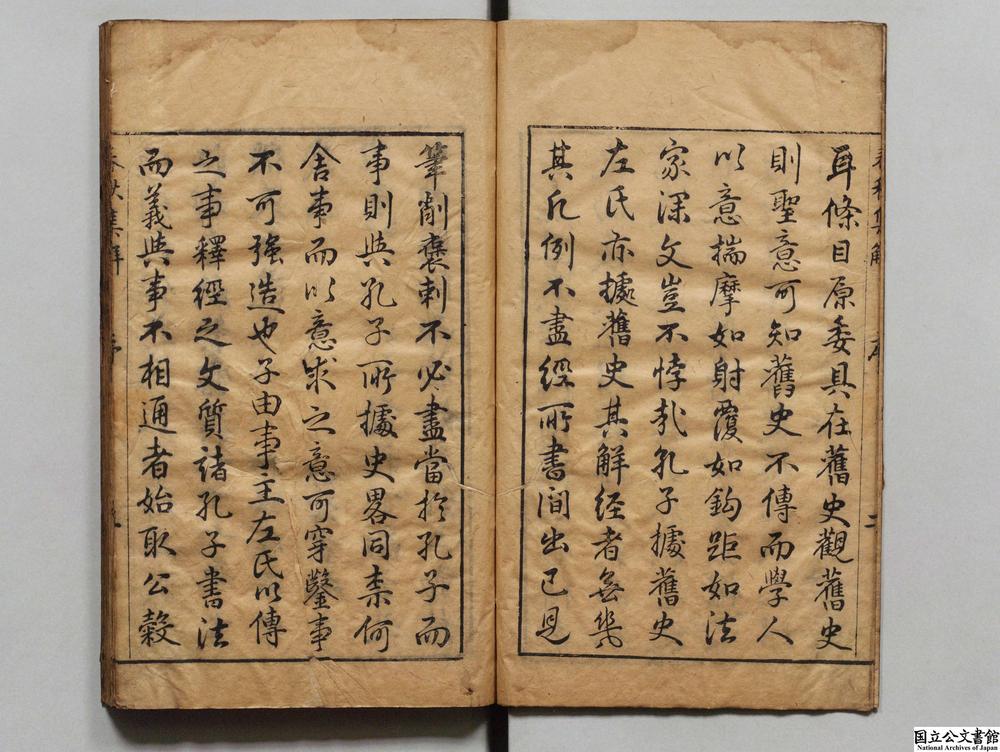 耳條目原委具在舊史觀舊史
則聖意可知舊史不傳而學人
以意揣摩如射覆如鈎距如法
家深文豈不悖哉孔子據舊史
左氏亦據舊史其解經者無幾
其凡例不盡經所書間出己見
筆削褒刺不必盡當於孔子而
事則與孔子所據史畧同柰何
舍事而以意求之意可穿鑿事
不可強造也子由事主左氏以傳
之事釋經之文質諸孔子書法
而義與事不相通者始取公穀
春秋集解
序
国立公文書館
National Archives of Japan